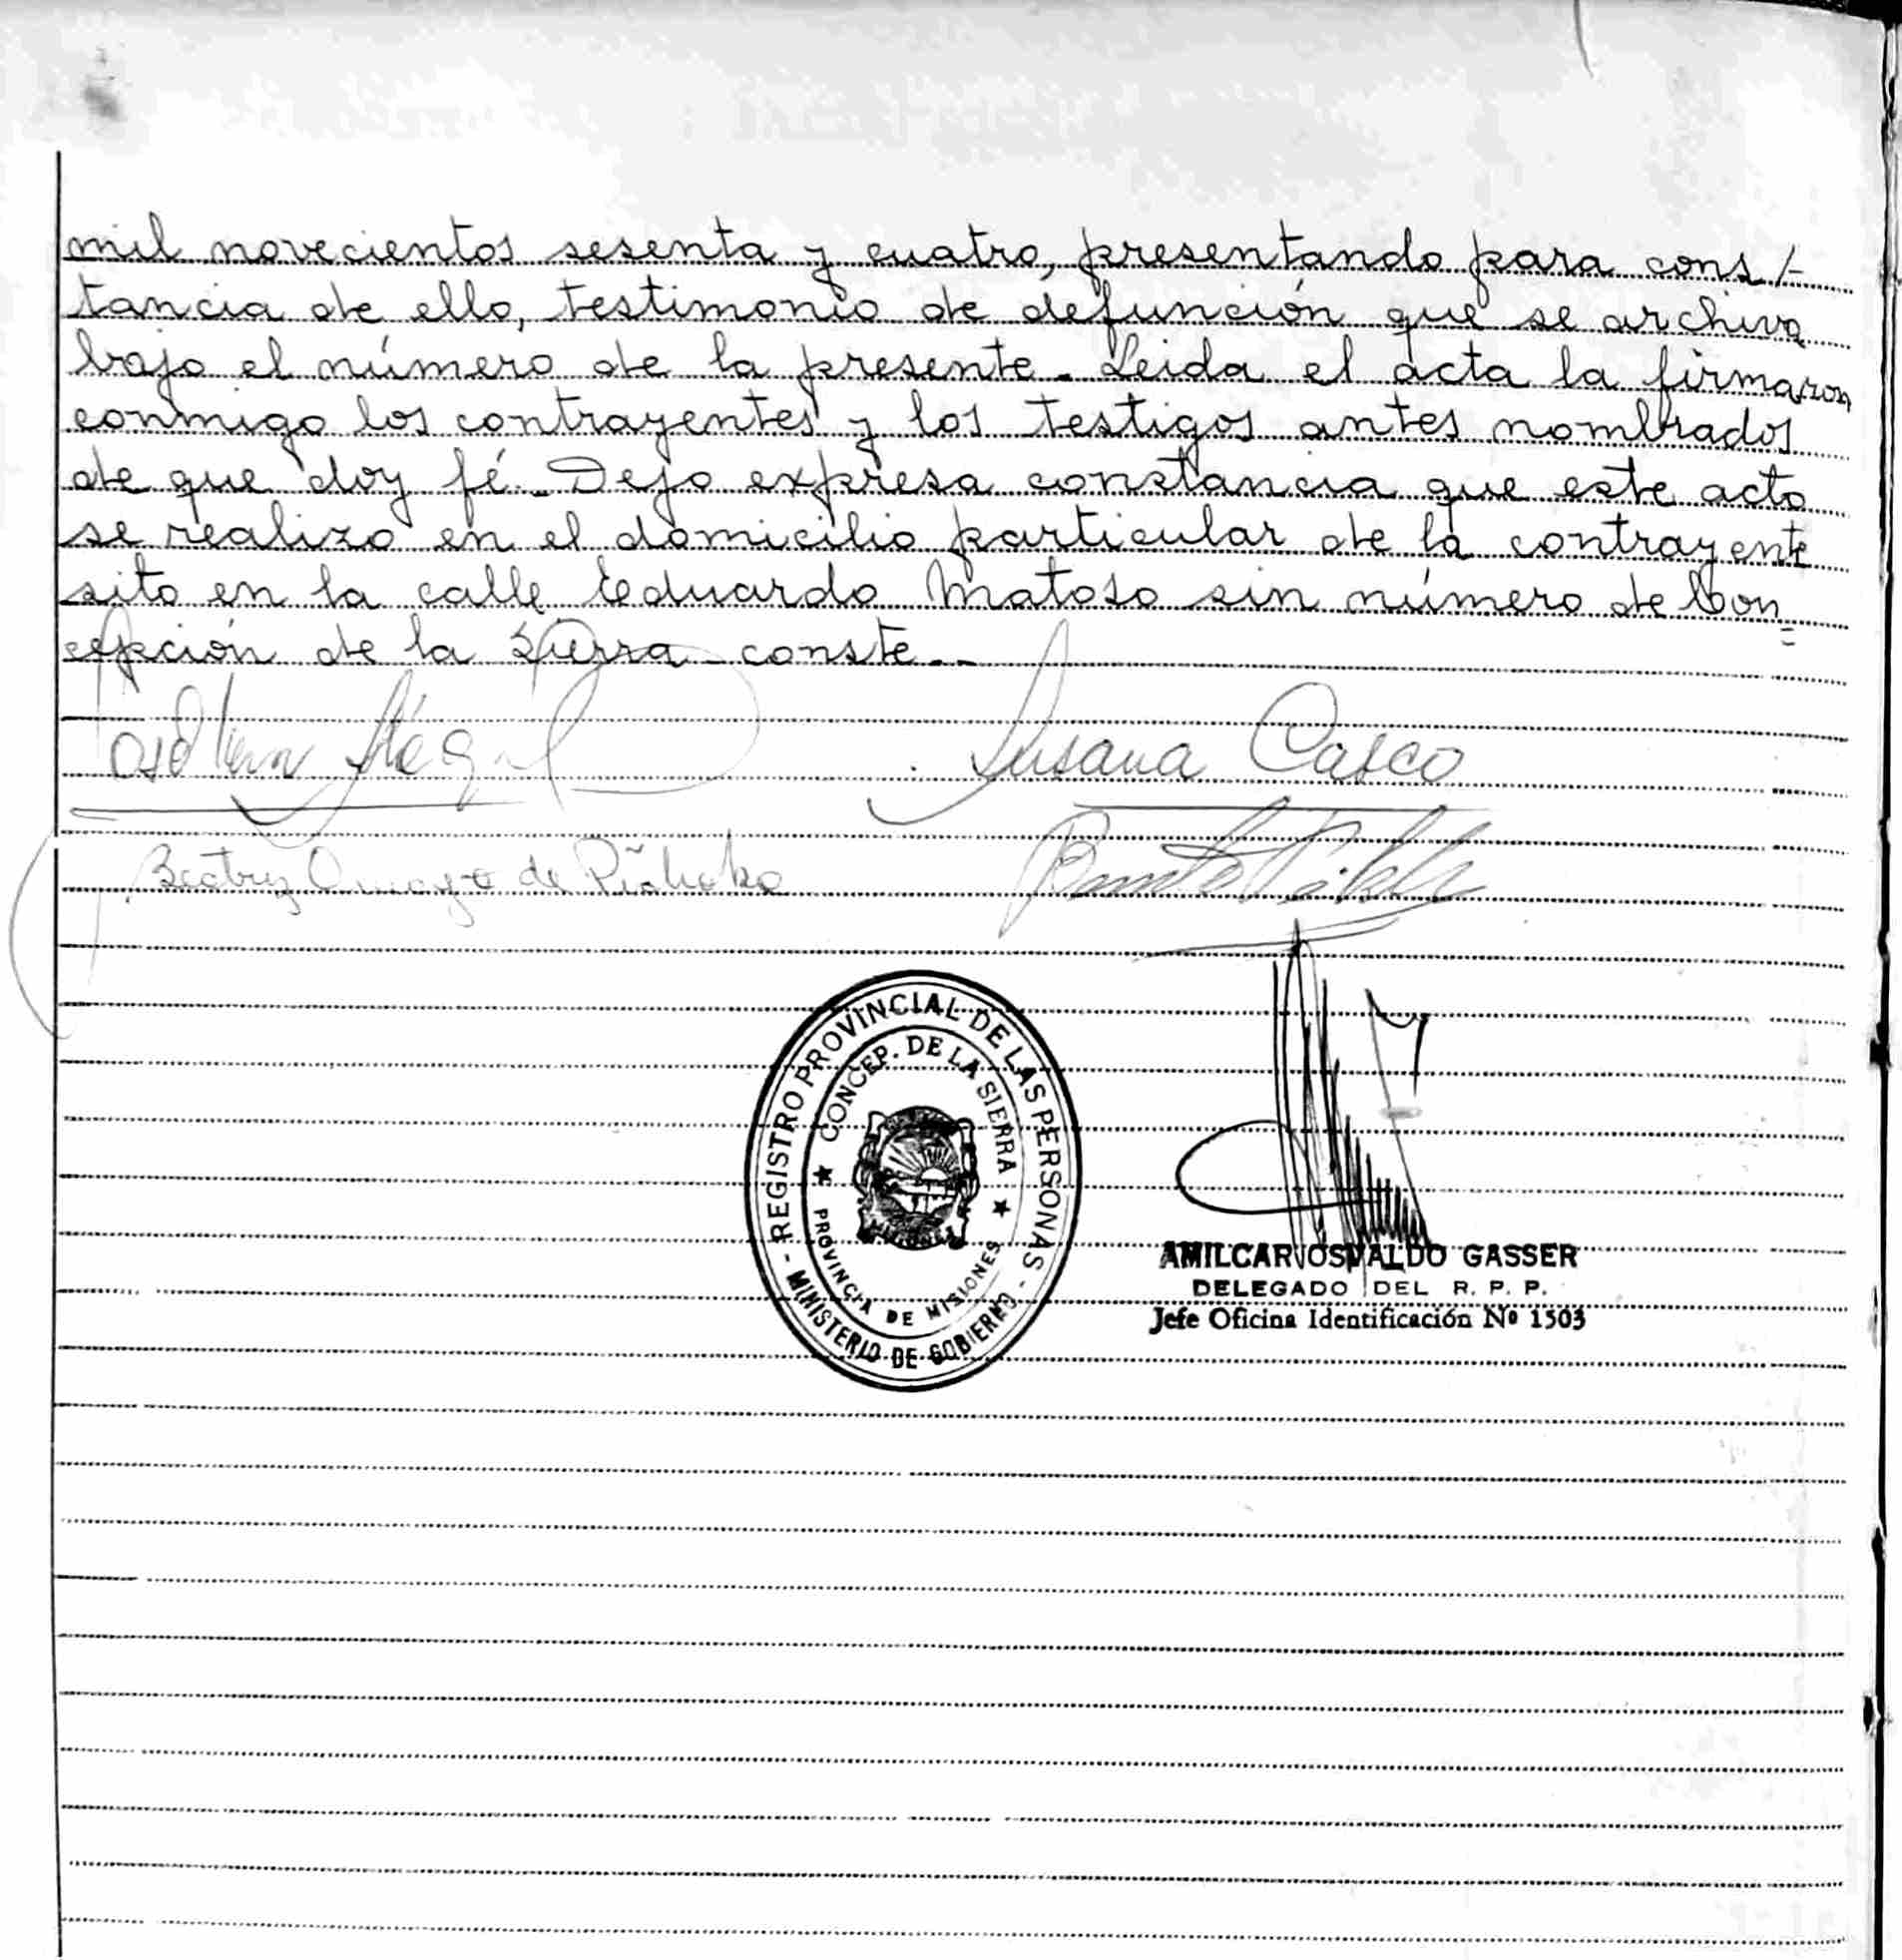 mil novecientos sesenta y cuatro, presentando para cons/-
tancia de ello, testimonio de defunción que se archiva
bajo el número de la presente. Leida el acta la firmaron
conmigo los contrayentes y los testigos antes nombrados
de que doy fé. Dejo expresa constancia que este acto
se realizo en el domicilio particular de la contrayente
sito en la calle Eduardo Matoso sin número de Con=
cepción de la Sierra conste.-
Susana Casco
Beatriz de
REGISTRO PROVINCIAL DE LAS PERSONAS - MINISTERIO DE GOBIERNO -
★ CONCEP. DE LA SIERRA ★
PROVINCIA DE MISIONES
MISIONES
AMILCAR OSVALDO GASSER
DELEGADO DEL R. P. P.
Jefe Oficina Identificación Nº 1503